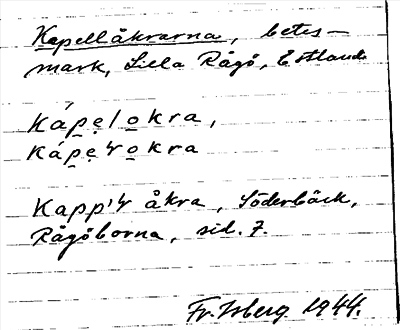 Kapellåkrarna, betes-
mark, Lilla Rågö, Estland.
kápẹlokra,
kápẹłokra
Kapp'ł åkra, Söderbäck,
Rågöborna, sid. 7.
Fr. Isberg 1944.